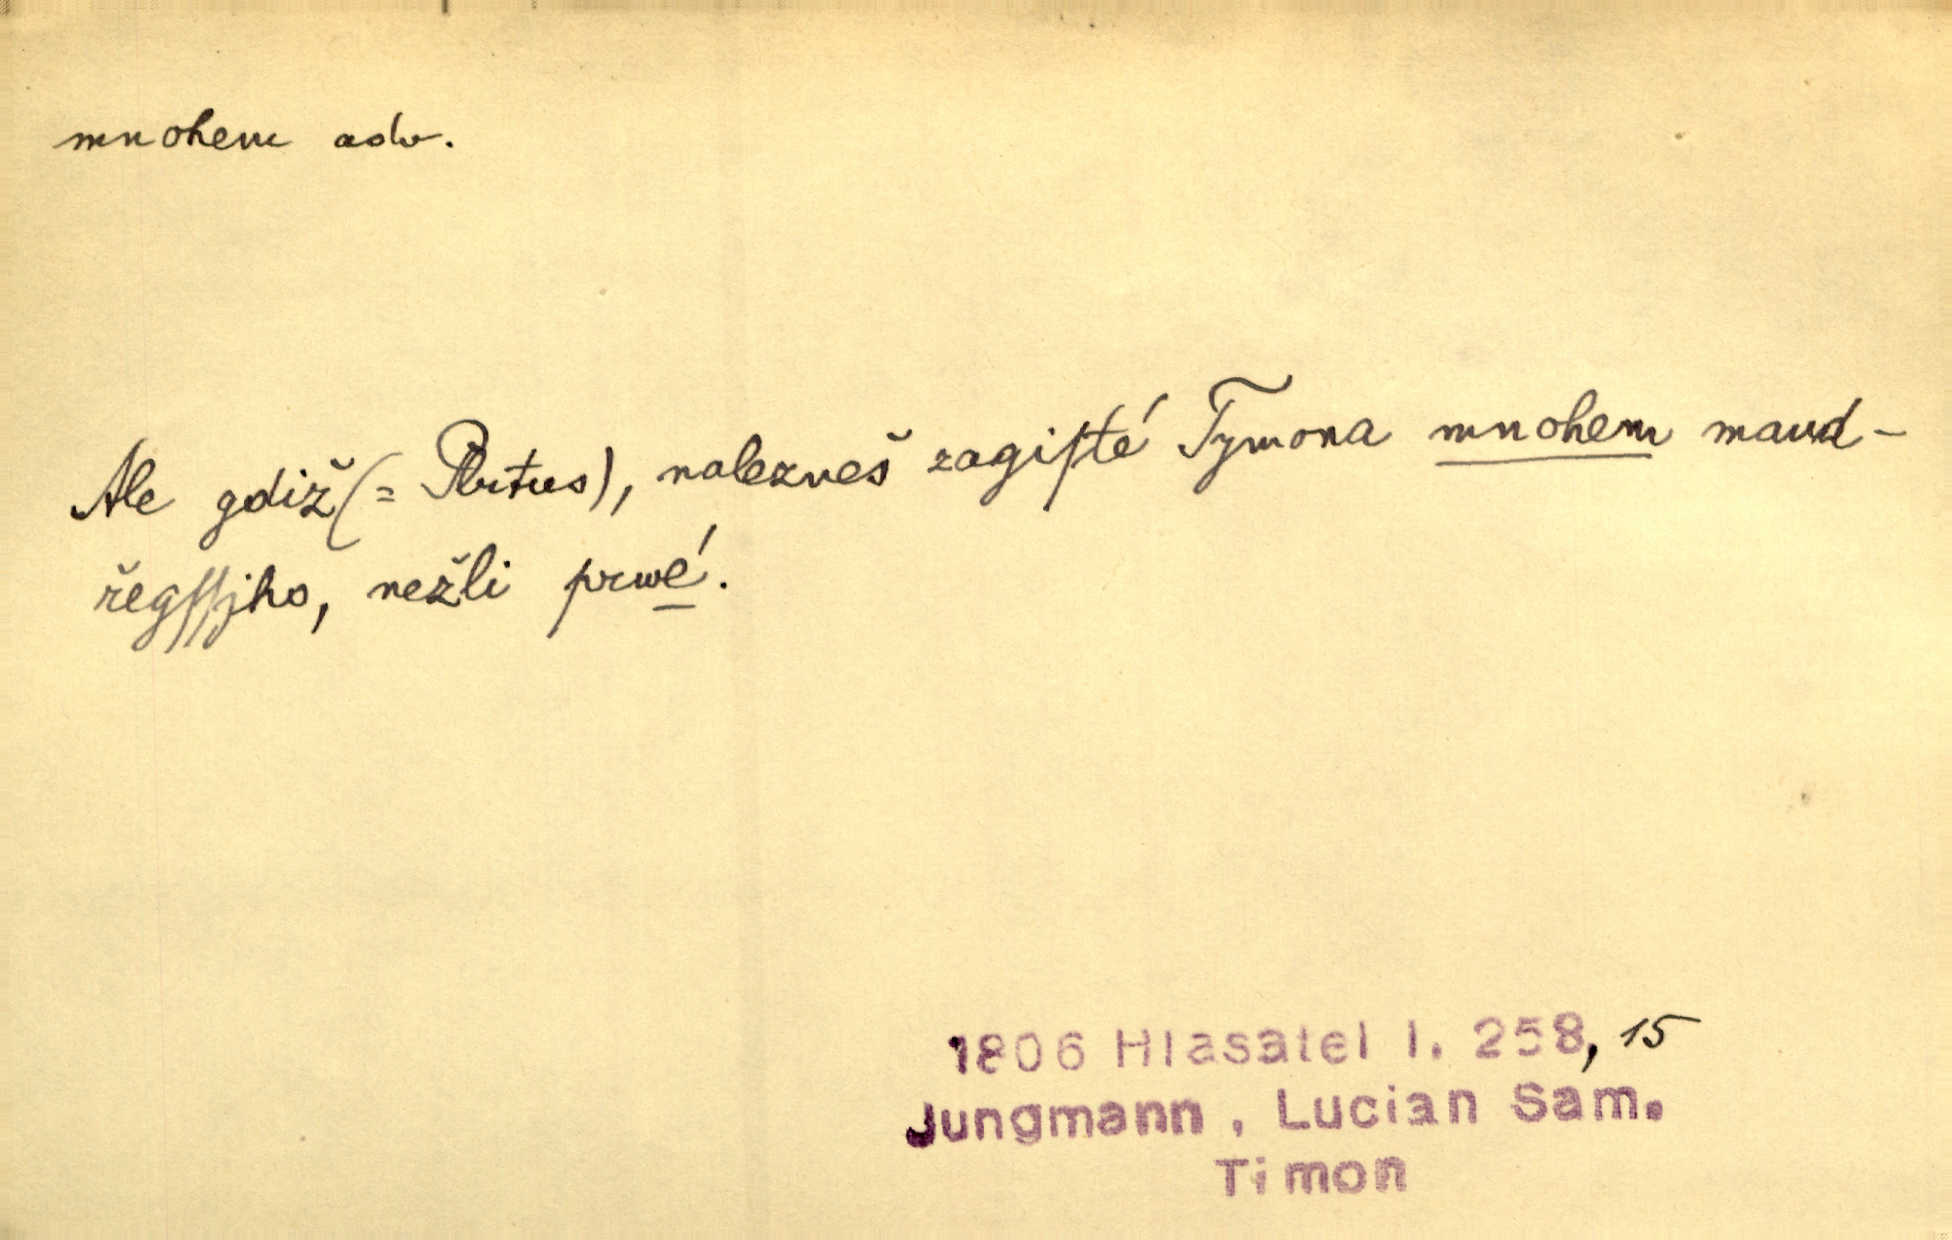 mnohem adv.
Ale gdiž (= Plutus), nalezneš zagiſté Tymona mnohem maud-
řegſſjho, nežli prwé.
1806 Hlasatel I. 258, 15
Jungmann, Lucian Sam.
Timon